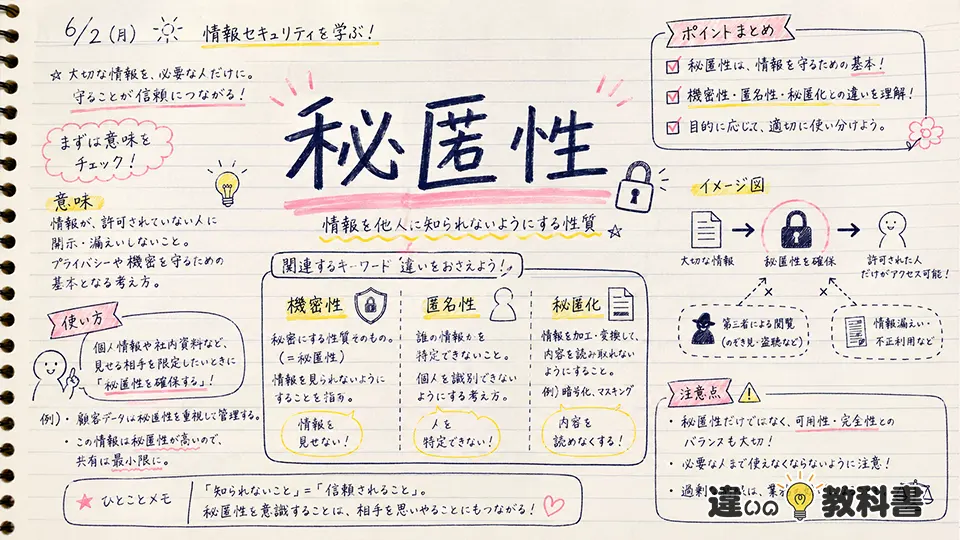 6/2(月)
情報セキュリティを学ぶ!
☆ 大切な情報を、必要な人だけに。
守ることが信頼につながる!
まずは意味を
チェック!
秘匿性
情報を他人に知られないようにする性質
ポイントまとめ
秘匿性は、情報を守るための基本!
機密性・匿名性・秘匿化との違いを理解!
目的に応じて、適切に使い分けよう。
意味
情報が、許可されていない人に
開示・漏えいしないこと。
プライバシーや機密を守るための
基本となる考え方。
使い方
個人情報や社内資料など、
見せる相手を限定したいときに
「秘匿性を確保する」!
例)・顧客データは秘匿性を重視して管理する。
・この情報は秘匿性が高いので、
共有は最小限に。
関連するキーワード 違いをおさえよう!
機密性
秘密にする性質そのもの。
(=秘匿性)
情報を見られないように
することを指す。
情報を
見せない!
匿名性
誰の情報かを
特定できないこと。
個人を識別できない
ようにする考え方。
人を
特定できない!
秘匿化
情報を加工・変換して、
内容を読み取れない
ようにすること。
例)暗号化、マスキング
内容を
読めなくする!
イメージ図
大切な情報
秘匿性を確保
許可された人
だけがアクセス可能!
第三者による閲覧
(のぞき見・盗聴など)
情報漏えい・
不正利用など
注意点
・秘匿性だけではなく、可用性・完全性との
バランスも大切!
・必要な人まで使えなくならないように注意!
・過剰
は、業
ひとことメモ
「知られないこと」=「信頼されること」。
秘匿性を意識することは、相手を思いやることにもつながる!
違いの教科書